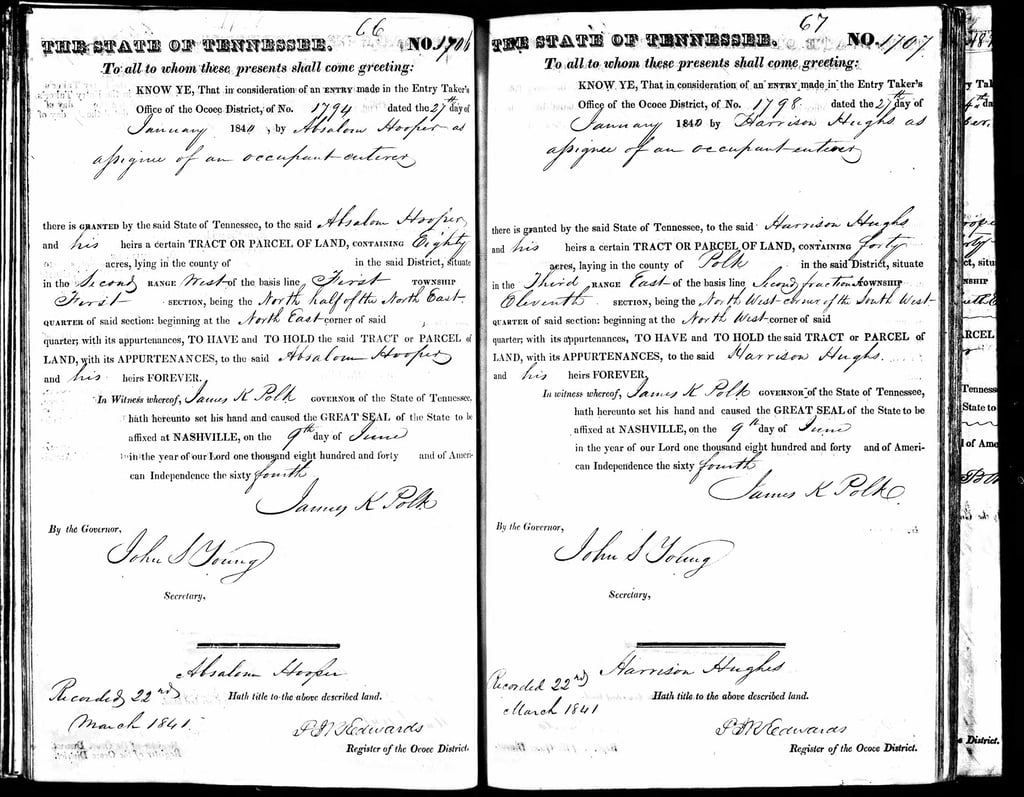 66
THE STATE OF TENNESSEE. NO. 1706
To all to whom these presents shall come greeting:
KNOW YE, That in consideration of an ENTRY made in the Entry Taker's
Office of the Ococe District, of No. 1794 dated the 27th day of
January 1840, by Absalom Hooper as
assignee of an occupant enterer
there is GRANTED by the said State of Tennessee, to the said Absalom Hooper
and his heirs a certain TRACT OR PARCEL OF LAND, CONTAINING Eighty
acres, lying in the county of in the said District, situate
in the Second RANGE West of the basis line First TOWNSHIP
First SECTION, being the North half of the North East
QUARTER of said section: beginning at the North East corner of said
quarter; with its appurtenances, TO HAVE and TO HOLD the said TRACT or PARCEL of
LAND, with its APPURTENANCES, to the said Absalom Hooper
and his heirs FOREVER.
In Witness whereof, James K Polk GOVERNOR of the State of Tennessee,
hath hereunto set his hand and caused the GREAT SEAL of the State to be
affixed at NASHVILLE, on the 9th day of June
in the year of our Lord one thousand eight hundred and forty and of Ameri-
can Independence the sixty fourth
James K Polk
By the Governor,
John S Young
Secretary,
Absalom Hooper
Recorded 22nd Hath title to the above described land.
March 1841.
Edwards
Register of the Ococe District.
67
THE STATE OF TENNESSEE. NO. 1707.
To all to whom these presents shall come greeting:
KNOW YE, That in consideration of an ENTRY made in the Entry Taker's
Office of the Ococe District, of No. 1798 dated the 27th day of
January 1840 by Harrison Hughs as
assignee of an occupant enterer
there is granted by the said State of Tennessee, to the said Harrison Hughs
and his heirs a certain TRACT OR PARCEL OF LAND, CONTAINING forty
acres, laying in the county of Polk in the said District, situate
in the Third RANGE East of the basis line Second fraction TOWNSHIP
Eleventh SECTION, being the North West corner of the South West
QUARTER of said section: beginning at the North West corner of said
quarter; with its appurtenances, TO HAVE and TO HOLD the said TRACT or PARCEL of
LAND, with its APPURTENANCES, to the said Harrison Hughs.
and his heirs FOREVER,
In witness whereof, James K Polk GOVERNOR of the State of Tennessee,
hath hereunto set his hand and caused the GREAT SEAL of the State to be
affixed at NASHVILLE, on the 9th day of June
in the year of our Lord one thousand eight hundred and forty and of Ameri-
can Independence the sixty fourth
James K Polk
By the Governor,
John S Young
Secretary,
Harrison Hughes
Recorded 22nd Hath title to the above described land.
March 1841
Edwards
Register of the Ococe District.